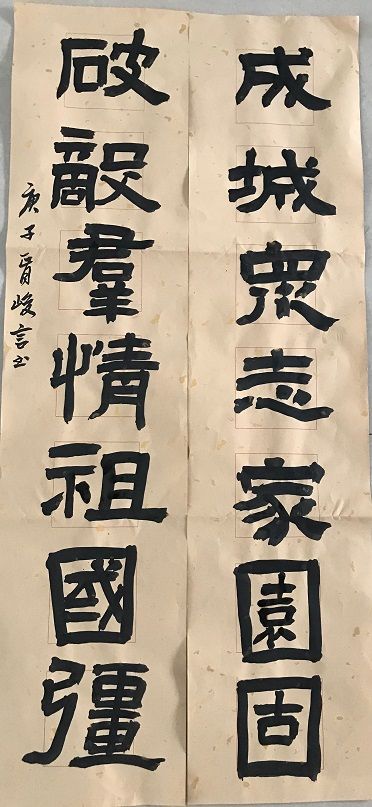 成城衆志家園固
破敵羣情祖國彊
庚子胥峻言书